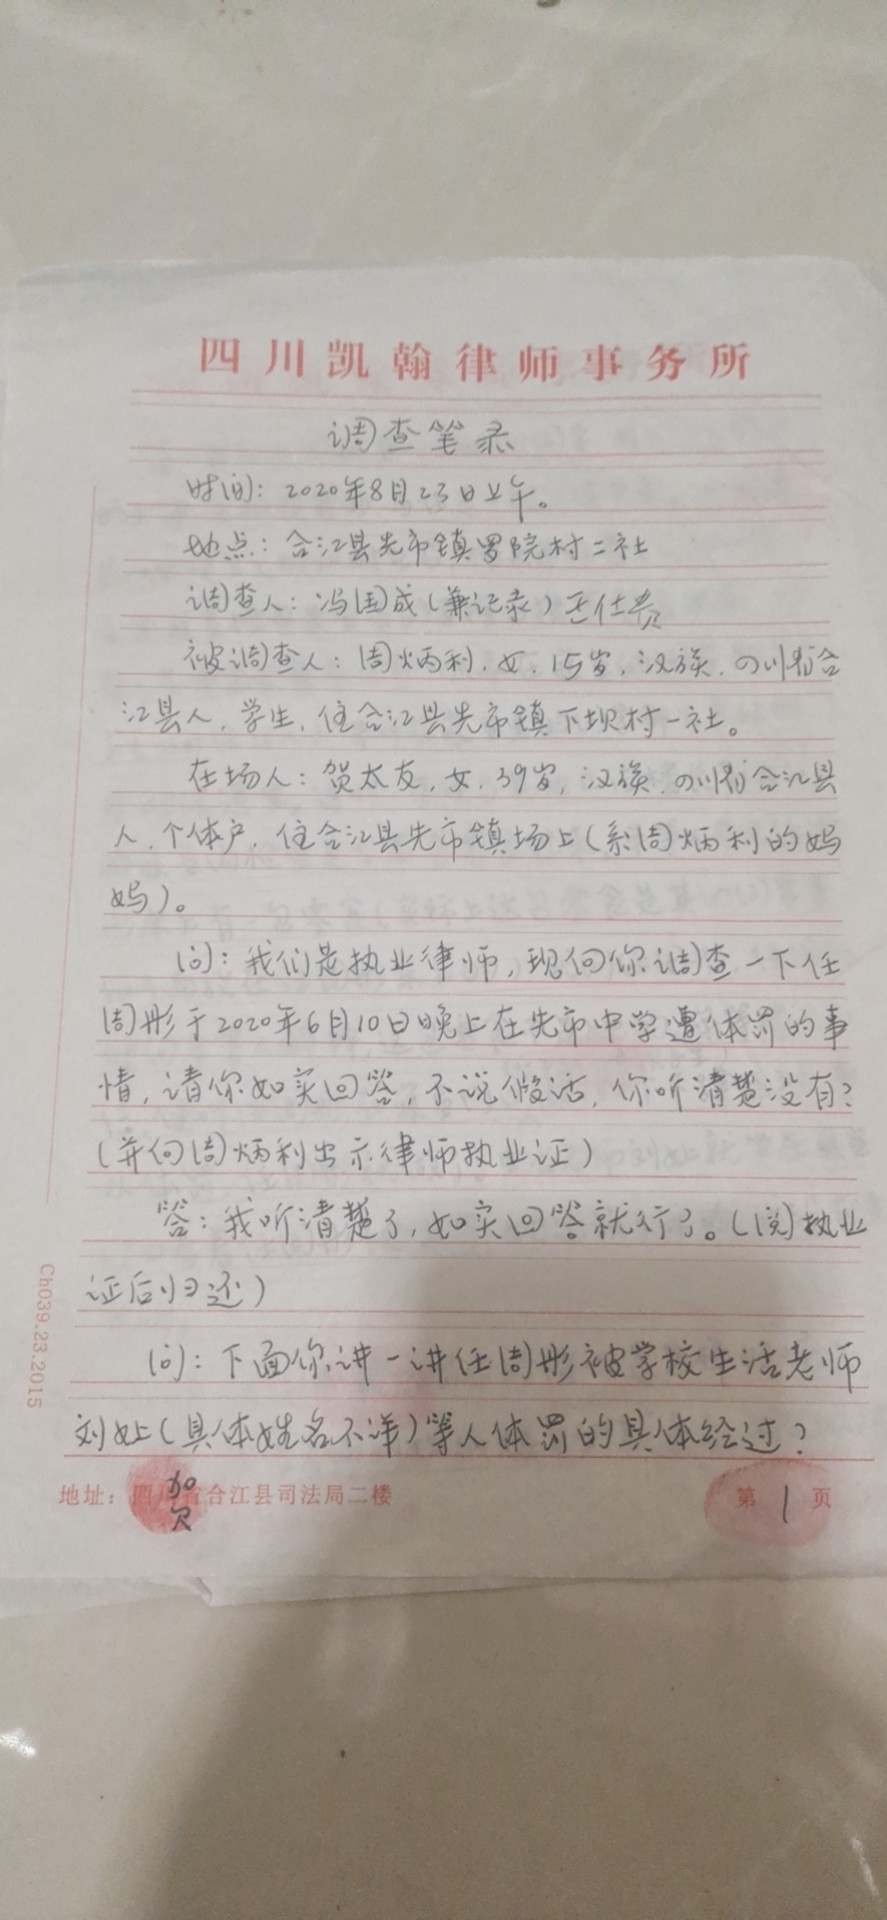 四川凯翰律师事务所
调查笔录
时间：2020年8月23日上午。
地点：合江县先市镇罗院村二社
调查人：冯国成（兼记录）王仕贵
被调查人：周炳利，女，15岁，汉族，四川省合
江县人，学生，住合江县先市镇下坝村一社。
在场人：贺太友，女，39岁，汉族，四川省合江县
人，个体户，住合江县先市镇场上（系周炳利的妈
妈）。
问：我们是执业律师，现向你调查一下任
周彤于2020年6月10日晚上在先市中学遭体罚的事
情，请你如实回答，不说假话，你听清楚没有？
（并向周炳利出示律师执业证）
答：我听清楚了，如实回答就行了。（阅执业
证后归还）
问：下面你讲一讲任周彤被学校生活老师
刘处（具体姓名不详）等人体罚的具体经过？
Ch039.23.2015
地址：四川省合江县司法局二楼
第1页